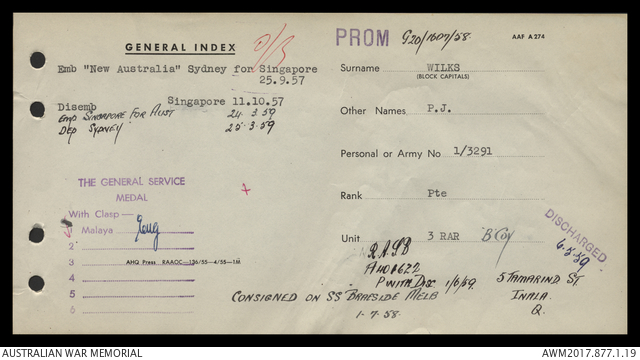 GENERAL INDEX
Emb "New Australia" Sydney for Singapore
25.9.57
Disemb Singapore 11.10.57
Emb SINGAPORE FOR AUST 24 3.59
Dep SYDNEY 25.3.59
THE GENERAL SERVICE
MEDAL
With Clasp—
1 Malaya
2
3
4
5
6
AHQ Press RAAOC—136/55—4/55—1M
PROM G20/1607/58
AAF A 274
Surname WILKS
(BLOCK CAPITALS)
Other Names P.J.
Personal or Army No 1/3291
Rank Pte
Unit 3 RAR B Coy
DISCHARGED
6.5.59
R.A.S.B
P WITH Disc 1/6/59.
5 TAMARIND ST
INALA
Q.
CONSIGNED ON SS BRAESIDE MELB
1-7-58
AUSTRALIAN WAR MEMORIAL
AWM2017.877.1.19